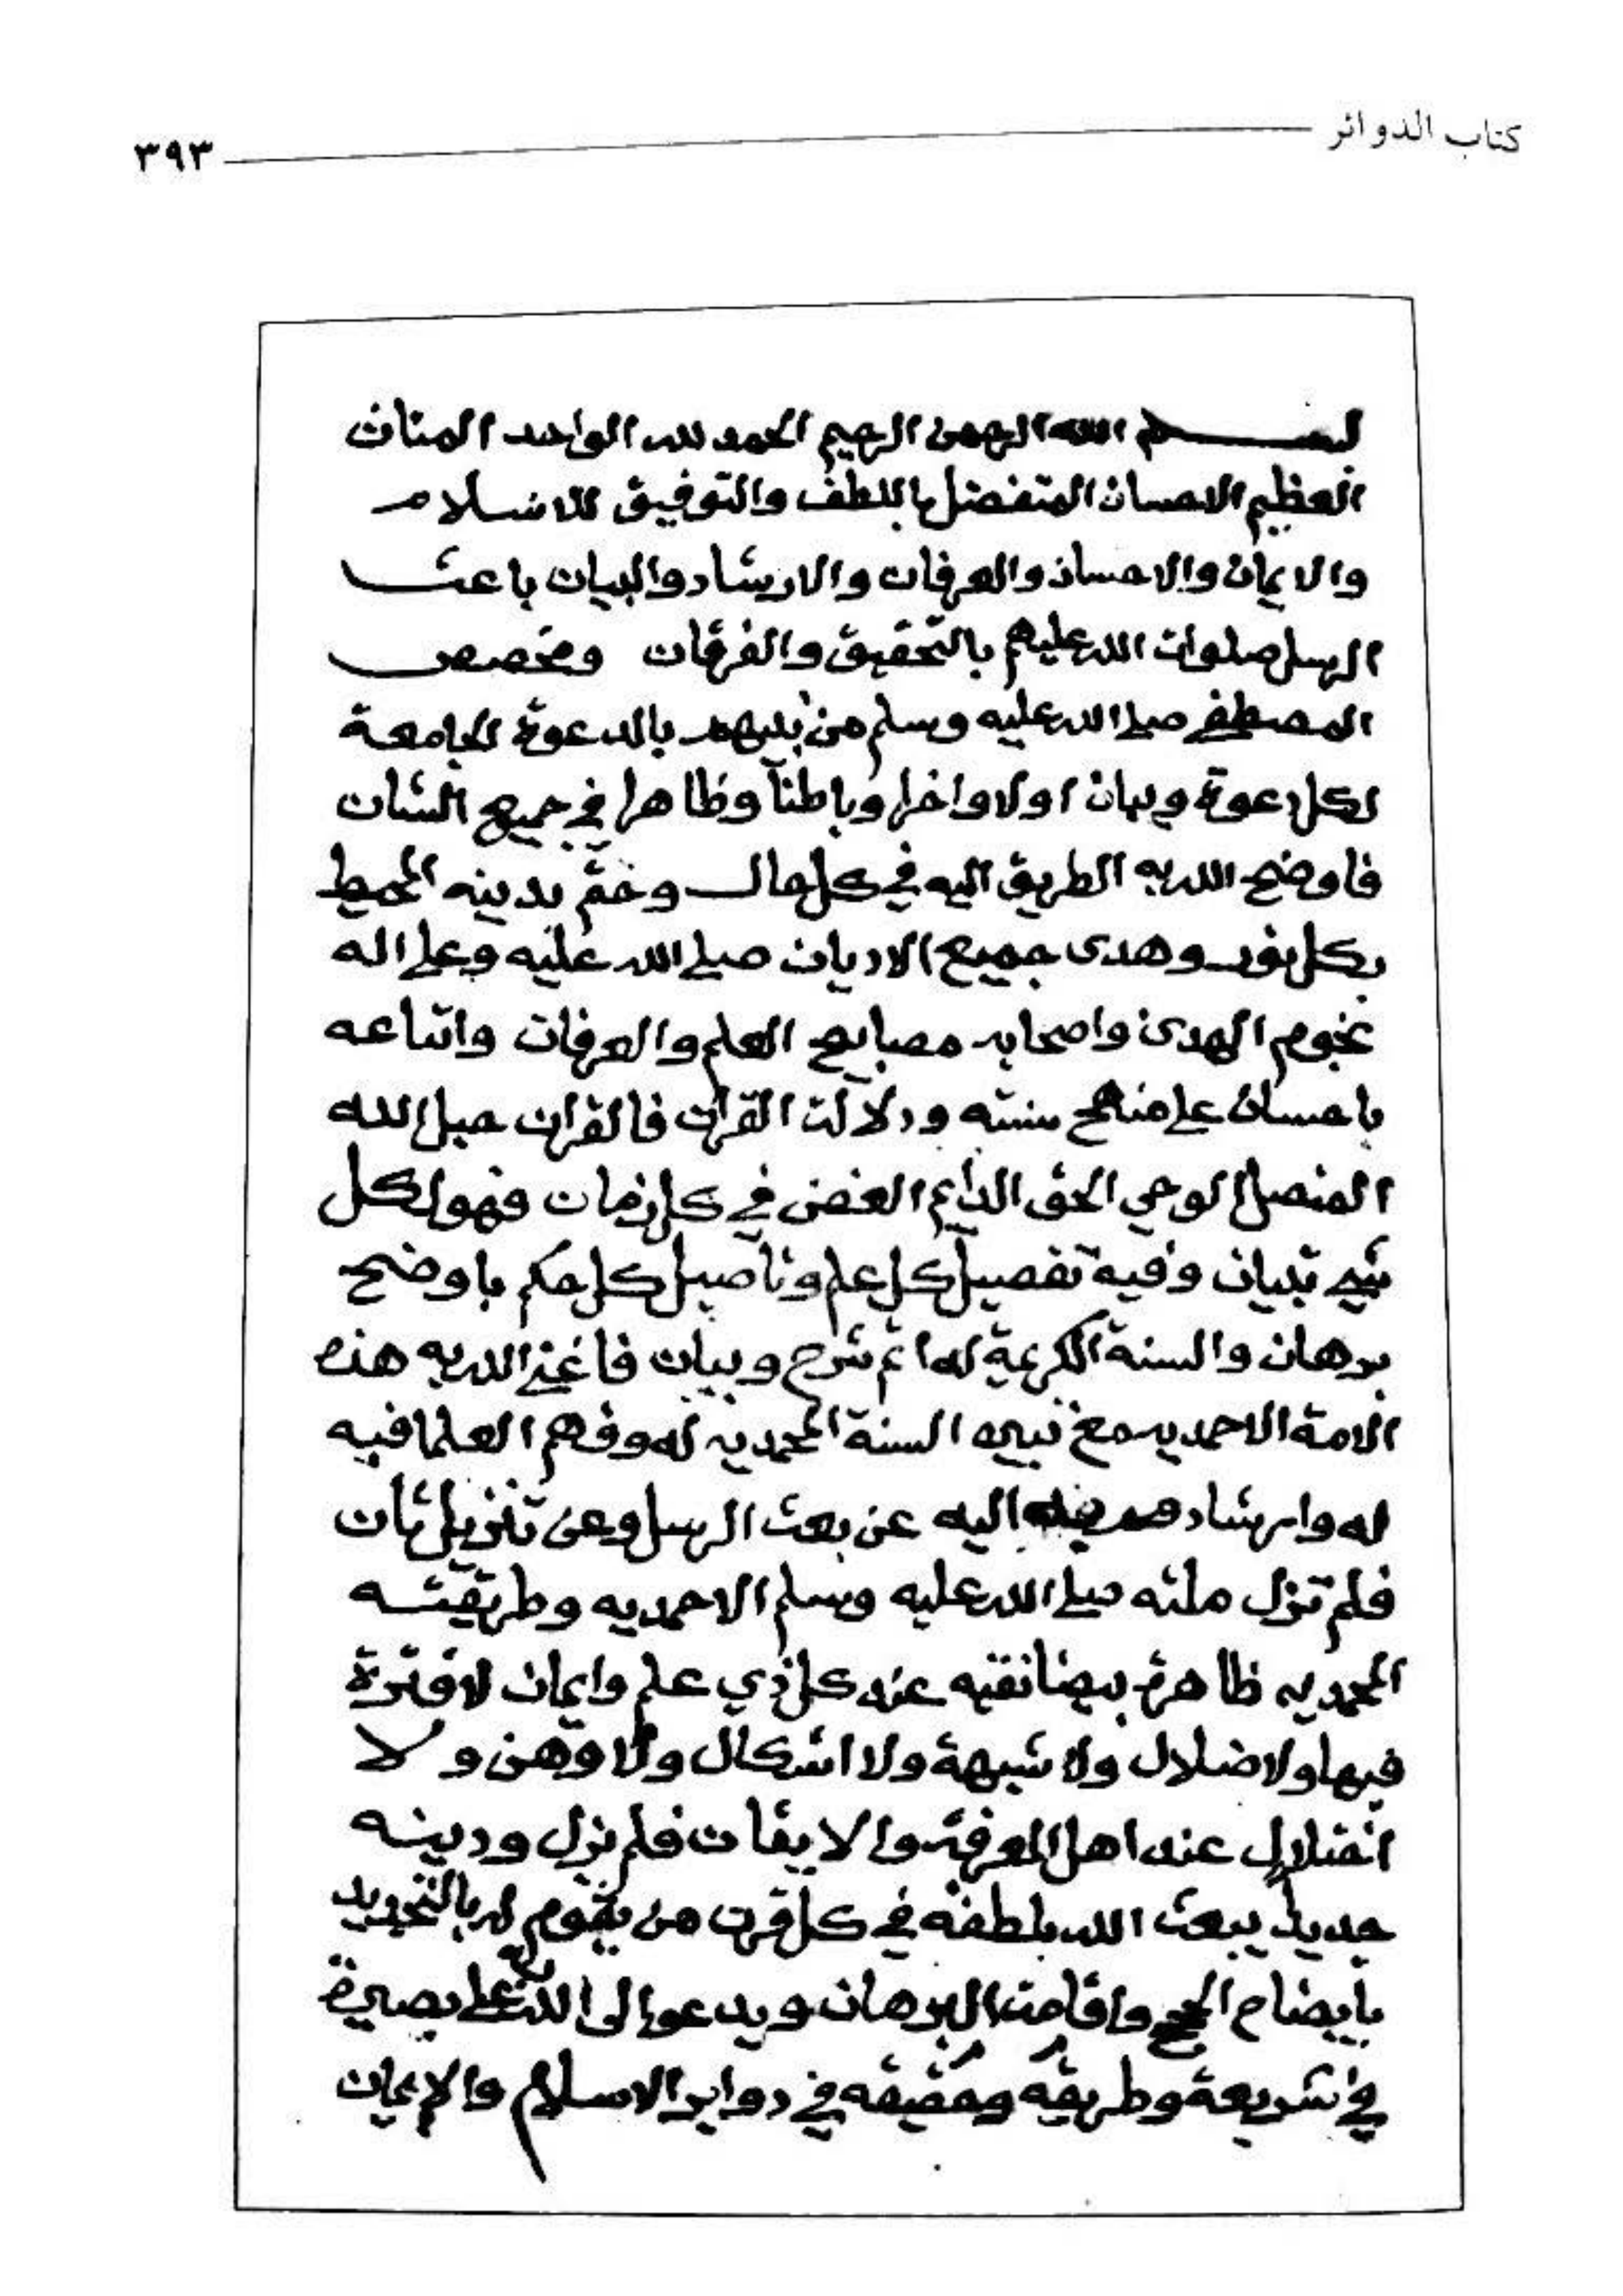 كتاب الدوائر ٣٩٣
بسم الله الرحمن الرحيم الحمد لله الواحد المنان
العظيم الاحسان المتفضل باللطف والتوفيق للاسلام
والايمان والاحسان والعرفان والارشاد والبيان باعث
الرسل صلوات الله عليهم بالتحقيق والفرقان ومخصص
المصطفى صلى الله عليه وسلم من بينهم بالدعوة الجامعة
لكل دعوة وبيان اولا واخرا وباطنا وظاهرا في جميع الشان
فاوضح الله به الطريق اليه في كل حال وختم بدينه المحيط
بكل نور وهدى جميع الاديان صلى الله عليه وعلى اله
نجوم الهدى واصحابه مصابيح العلم والعرفان واتباعه
باحسان على منهج سنته ودلالت القران فالقران حبل الله
المتصل الوحي الحق الدايم الغض في كل زمان فهو لكل
شي تبيان وفيه تفصيل كل علم وتاصيل كل حكم باوضح
برهان والسنة الكريمة له اتم شرح وبيان فاغنى الله به هذه
الامة الاحمديه مع تبيين السنة المحمديه له وفهم العلما فيه
له وارشاد اليه عن بعث الرسل وعن تنزيل ثان
فلم تزل ملته صلى الله عليه وسلم الاحمديه وطريقته
المحمديه ظاهرة بيضا نقيه عند كل ذي علم وايمان لا فترة
فيها ولا ضلال ولا شبهة ولا اشكال ولا وهن ولا
اختلال عند اهل المعرفة والايقان فلم يزل ودينه
جديدا يبعث الله بلطفه في كل قرن من يقوم له بالتجديد
بايضاح الحجج واقامة البرهان ويدعوا الى الله على بصيرة
في شريعة وطريقه وحقيقه في دواير الاسلام والايمان